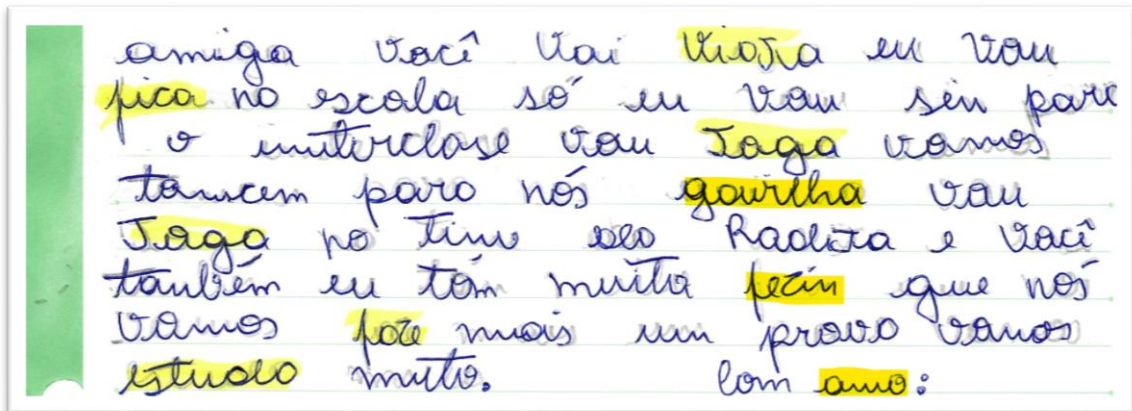 amiga você vai viaja eu vou
fica no escola só eu vou sen pare
o interclase vou Joga vamos
tancem para nós gairlha vau
Joga po time do e você
tanbém eu tôm muita que nós
vamos faze mais um prova vamos
estudo muto. com amo: